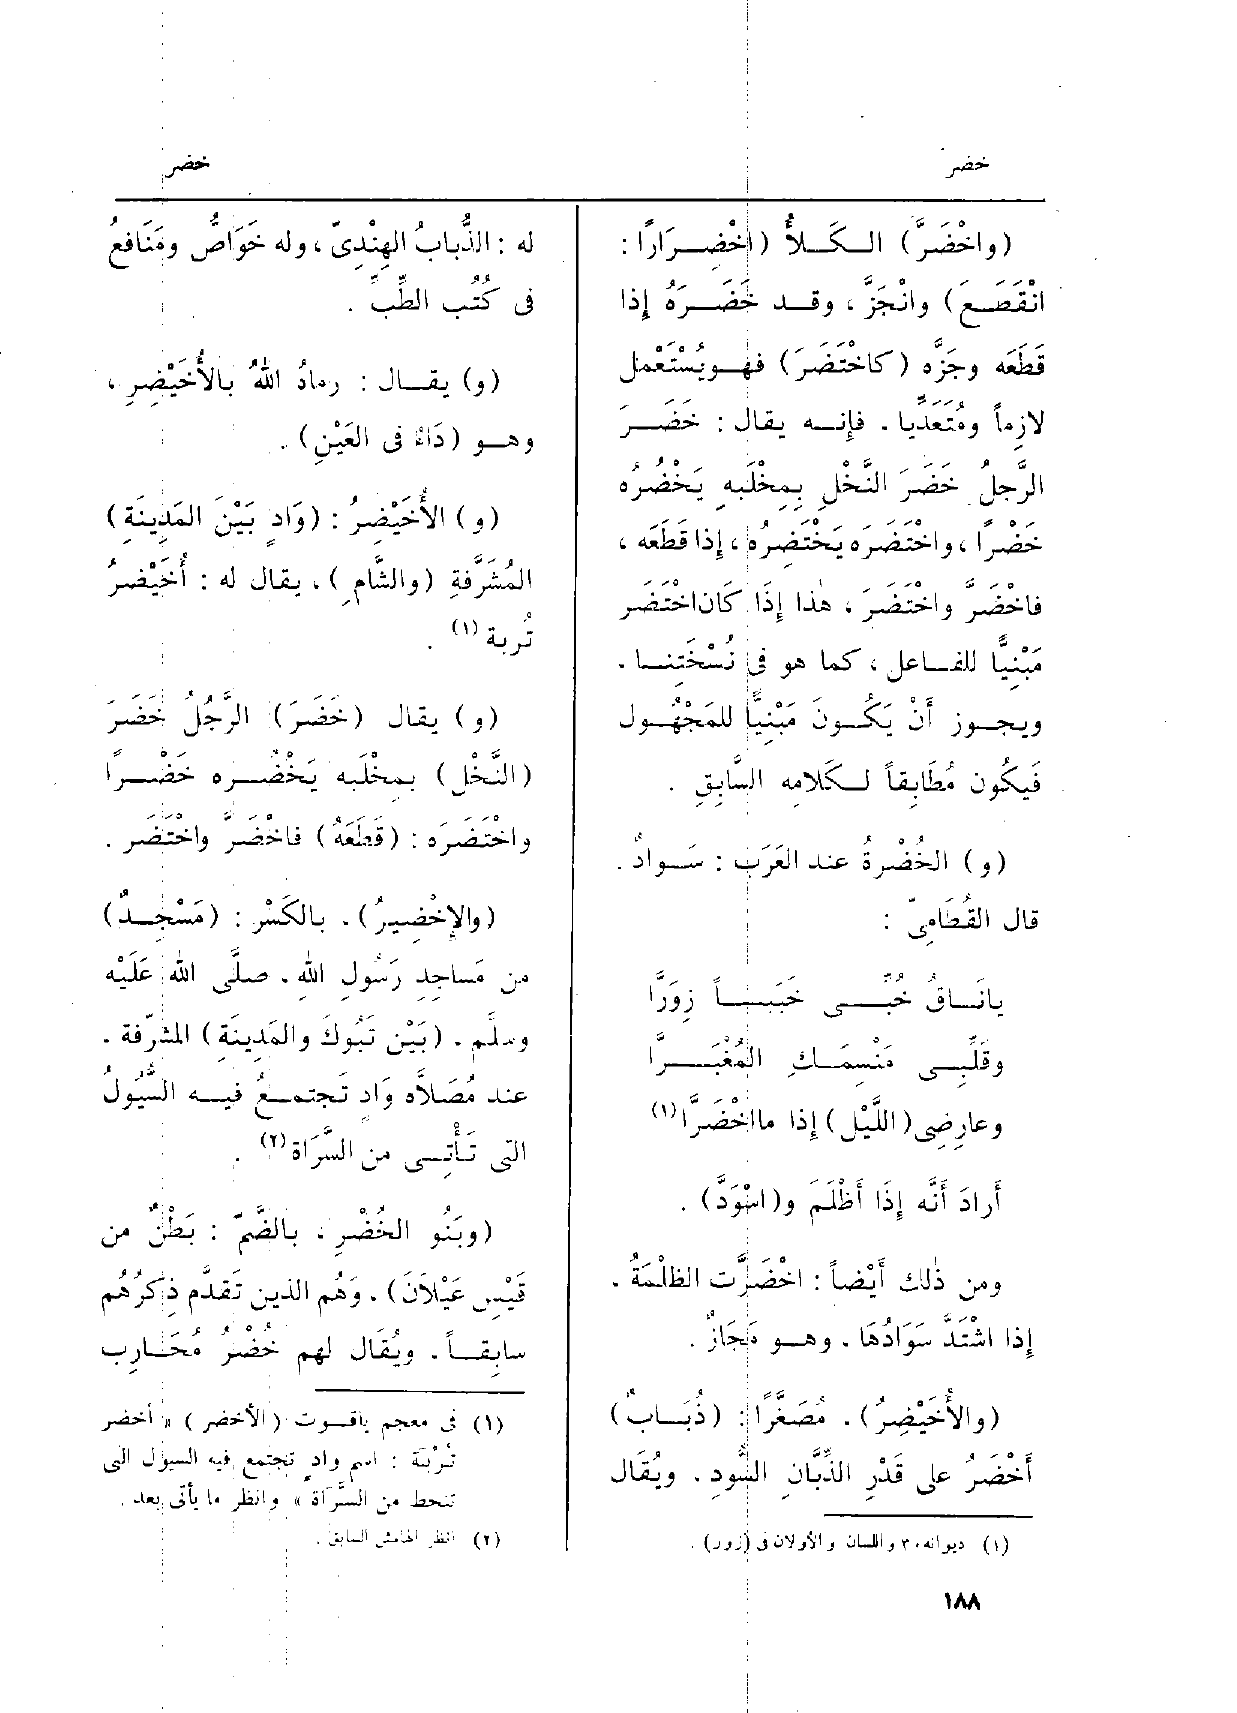 خضر
خضر
(واخْضَرَّ) الـكـلأُ (اخْضِـرَارًا :
انْقَطَـع) وانْجَزَّ ، وقـد خَضَـرَهُ إذا
قَطَعَه وجَزَّه (كاخْتَضَرَ) فهـويُسْتَعْمل
لازِماً ومُتَعَدِّيا . فإِنـه يقال : خَضَـرَ
الرَّجلُ خَضَرَ النَّخْلَ بِمخْلَبِهِ يَخْضُرُه
خَضْرًا ، واخْتَضَرَه يَخْتَضِرُه ، إذا قَطَعَه ،
فاخْضَرَّ واخْتَضَرَ ، هٰذا إِذَا كان اخْتَضَر
مَبْنِيًّا للفـاعل ، كما هو فى نُسْخَتِنـا .
ويجـوز أَنْ يَكُـونَ مَبْنِيًّا للمَجْهُـول
فَيكُون مُطَابِقاً لـكَلامِه السَّابِقِ .
(و) الخُضْرةُ عند العَرَب : سَـوادٌ .
قال القُطَامِىّ :
يانَـاقُ خُبِّـى خَبَبـاً زِوَرَّا
وقَلِّبِـى مَنْسِمَـكِ المُغْبَـرَّا
وعارِضِى (اللَّيْلَ) إِذا ما اخْضَرَّا(١)
أَرادَ أَنَّه إِذَا أَظْلَمَ و(اسْوَدَّ) .
ومن ذٰلك أَيْضاً : اخْضَرَّت الظلْمَةُ .
إِذا اشْتَدَّ سَوَادُهَا . وهـو مَجَازٌ .
(والأُخَيْضِرُ) . مُصَغَّرًا : (ذُبَـابٌ)
أَخْضَرُ على قَدْرِ الذِّبَّان السُّودِ . ويُقَال
(١) ديوانه ٣٠ واللسان والأولان فى (زور) .
له : الذُّبابُ الهِنْدِىّ ، وله خَوَاصُّ ومَنَافِعُ
فى كُتُب الطِّبِّ .
(و) يقـال : رماهُ اللهُ بالأُخَيْضِرِ ،
وهـو (دَاءٌ فى العَيْنِ) .
(و) الأُخَيْضِرُ : (وَادٍ بَيْنَ المَدِينَةِ)
المُشَرَّفةِ (والشَّامِ) ، يقال له : أُخَيْضِرُ
تُربة (١) .
(و) يقال (خَضَرَ) الرَّجُلُ خَضَرَ
(النَّخْلَ) بمخْلَبه يَخْضُـره خَضْـرًا
واخْتَضَرَه : (قَطَعَهُ) فاخْضَرَّ واخْتَضَر .
(والإِخْضِيرُ) . بالكَسْر : (مَسْجِـدٌ)
من مَساجِدِ رَسُولِ الله . صلَّى الله عَلَيْه
وسلَّم . (بَيْن تَبُوكَ والمَدِينَةِ) المشرّفة .
عند مُصَلَّاه وَادٍ تَجتمـعُ فيـه السُّيُولُ
التى تَأْتِـى من السَّرَاة(٢) .
(وبَنُو الخُضْرِ ، بالضَّمّ : بَطْنٌ من
قَيْسِ عَيْلَانَ) . وَهُم الذين تَقدَّم ذِكرُهُم
سابِقـاً . ويُقَال لهم خُضْرُ مُحَـارِب
(١) فى معجم ياقـوت (الأخضر) « أخضر
تُرْبَة : اسم وادٍ تجتمع فيه السيول التى
تنحط من السَّرَاة » وانظر ما يأتى بعد .
(٢) انظر الهامش السابق .
١٨٨